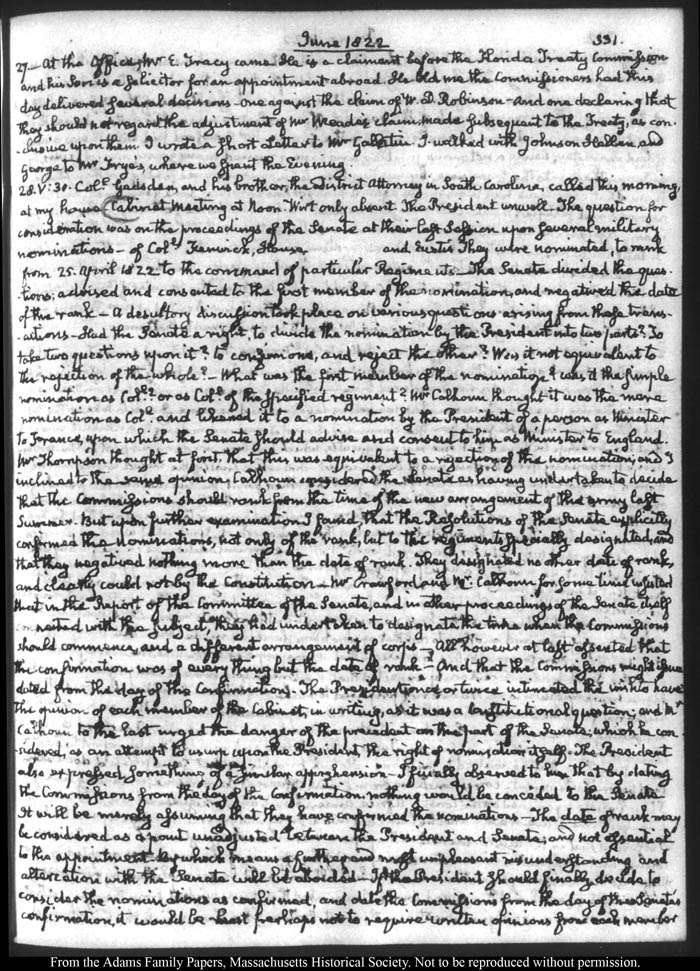 June 1822 331.
27— At the Office, Mr E. Tracy came. He is a claimant before the Florida Treaty Commission
and his Son is a Solicitor for an appointment abroad. He told me the Commissioners had this
day delivered several decisions— one against the claim of W. D. Robinson— And one declaring that
they should not regard the adjustment of Mr Meade's claim, made subsequent to the Treaty, as con-
-clusive upon them. I wrote a short Letter to Mr Gallatin. I walked with Johnson Hellen, and
George to Mr Frye's where we spent the Evening.
28. V:30. Coll. Gadsden, and his brother, the District Attorney in South Carolina, called this morning,
at my house. Cabinet Meeting at Noon. Wirt only absent. The President unwell. The question for
consideration was on the proceedings of the Senate at their last Session upon several military
nominations— of Cols. Fenwick, House and Eustis. They were nominated, to rank
from 25. April 1822 to the command of particular Regiments. The Senate divided the ques-
-tions; advised and consented to the first member of the nomination, and negatived the date
of the rank— A desultory discussion took place on various questions arising from these trans-
-actions— Had the Senate a right, to divide the nomination by the President into two parts? To
take two questions upon it? to confirm one, and reject the other? Was it not equivalent to
the rejection of the whole?— What was the first member of the nomination? was it the simple
nomination as Coll.? or as Coll. of the specified regiment? Mr Calhoun thought it was the mere
nomination as Coll. and likened it to a nomination by the President of a person as Minister
to France, upon which the Senate should advise and consent to him as Minister to England.
Mr Thompson thought at first that this was equivalent to a rejection of the nomination; and I
inclined to the same opinion. Calhoun considered the Senate as having undertaken to decide
that the Commissions should rank from the time of the new arrangement of the army last
Summer. But upon further examination I found, that the Resolutions of the Senate explicitly
confirmed the nominations, not only of the rank, but to the regiments specially designated, and
that they negatived nothing more than the date of rank. They designated no other date of rank,
and clearly could not by the Constitution— Mr Crawford, and Mr Calhoun for some time insisted
that in the Report of the Committee of the Senate, and in other proceedings of the Senate itself
connected with the subject, they had undertaken to designate the time when the Commissions
should commence, and a different arrangement of corps— All however at last assented that
the confirmation was of every thing but the date of rank— And that the Commissions might issue
dated from the day of the Confirmations. The President once or twice intimated the wish to have
the opinion of each member of the Cabinet, in writing, as it was a Constitutional question; and Mr
Calhoun to the last urged the danger of the precedent on the part of the Senate; which he con-
-sidered, as an attempt to usurp upon the President, the right of nomination itself. The President
also expressed something of a similar apprehension— I finally observed to him that by dating
the Commissions from the day of the confirmation, nothing would be conceded to the Senate.
It will be merely assuming that they have confirmed the nominations— The date of rank may
be considered as a point unadjusted between the President and Senate; and not essential
to the appointment— by which means a further and most unpleasant misunderstanding and
altercation with the Senate will be avoided— If the President should finally decide, to
consider the nominations as confirmed, and date the Commissions from the day of the Senate's
confirmation, it would be best perhaps not to require written opinions from each member
From the Adams Family Papers, Massachusetts Historical Society. Not to be reproduced without permission.